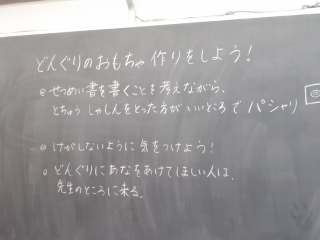 どんぐりのおもちゃ作りをしよう!
◎せつめい書を書くことを考えながら、
とちゅう しゃしんをとった方がいいところで パシャリ
◎けがしないように 気をつけよう!
◎どんぐりにあなをあけてほしい人は、
先生のところに来る。